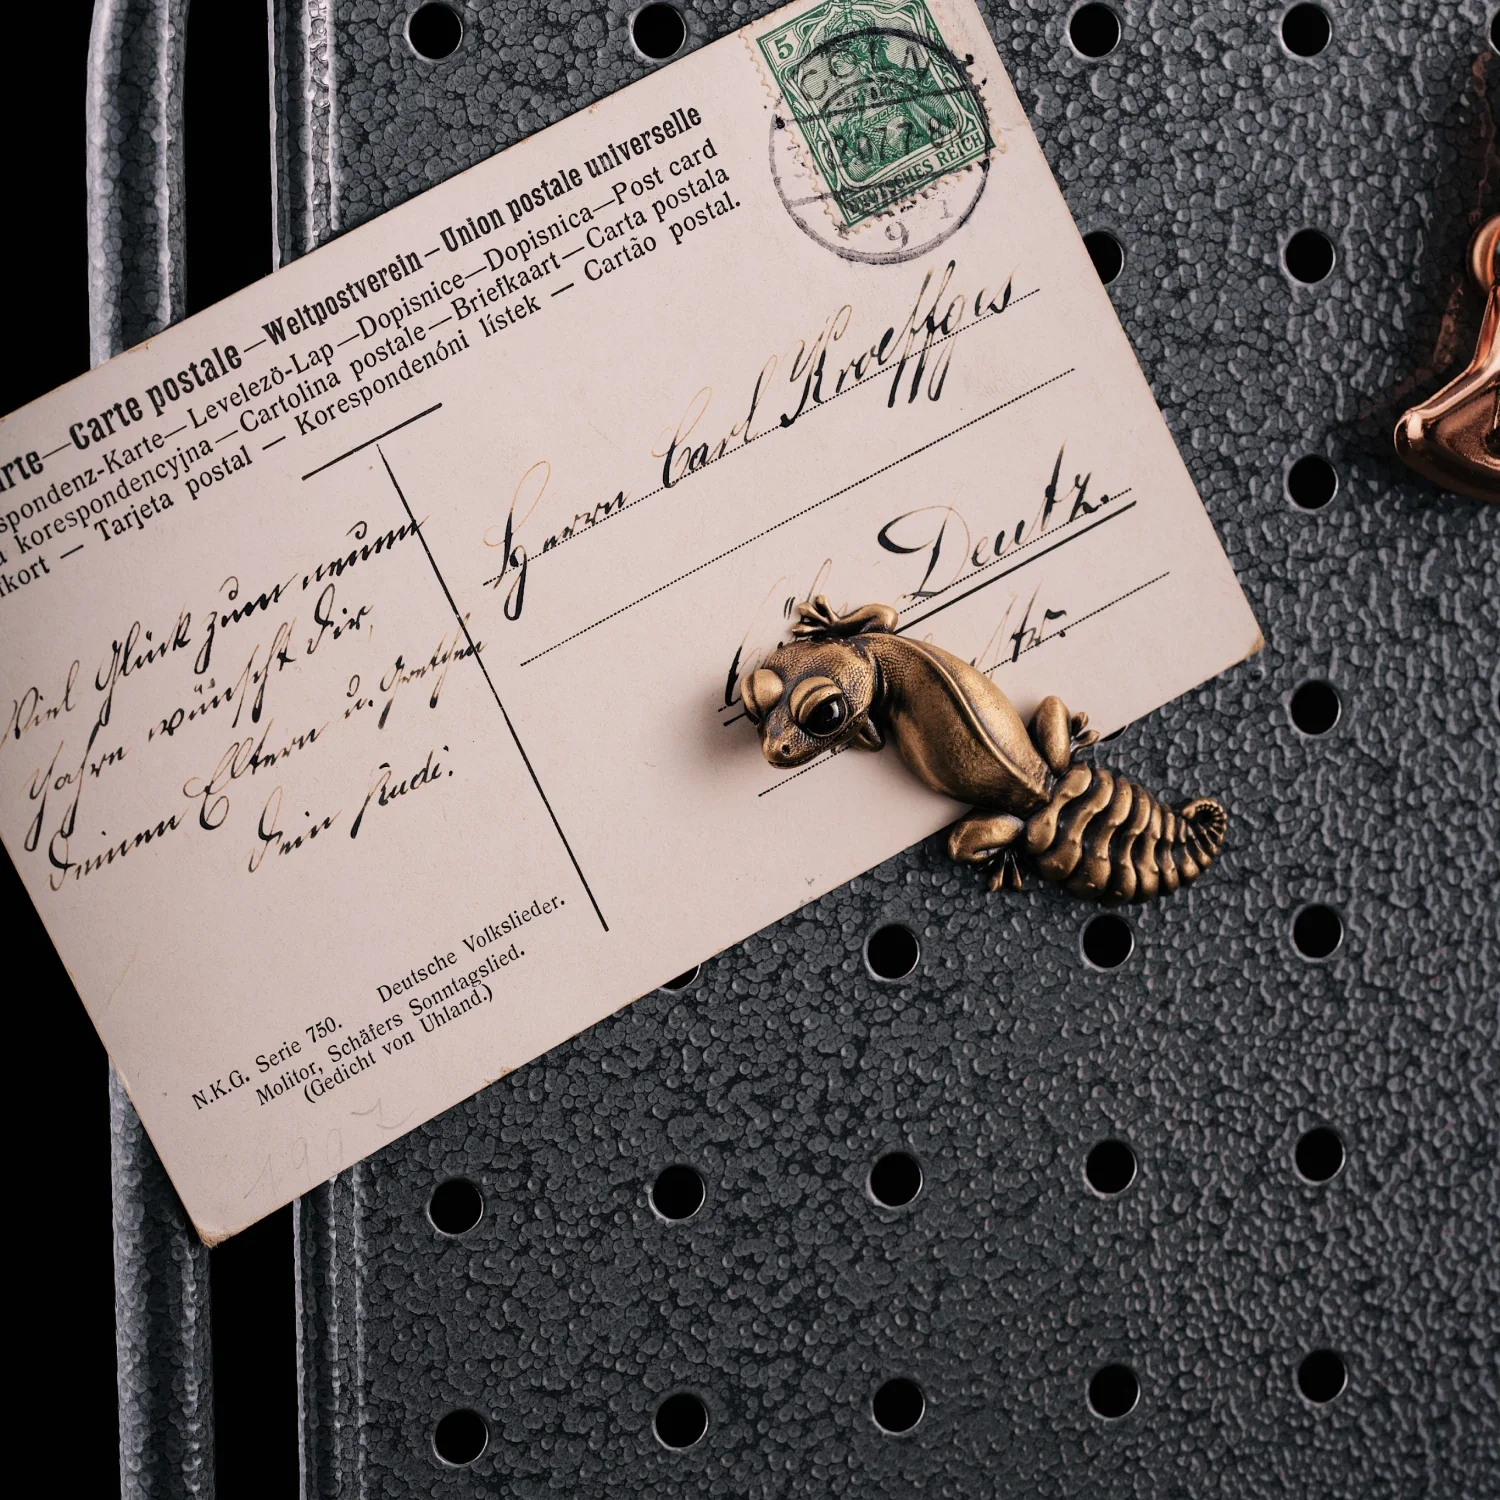 arte—Carte postale—Weltpostverein—Union postale universelle
spondenz-Karte—Levelező-Lap—Dopisnice—Dopisnica—Post card
a korespondencyjna—Cartolina postale—Briefkaart—Carta postala
fkort — Tarjeta postal — Korespondenóni lístek — Cartão postal.
5
DEUTSCHES REICH
9
1
Herrn Carl Kroeffges
Deutz.
Str.
Viel Glück zum neuen
Jahre wünscht Dir,
Deinen Eltern u. Gretchen
Dein Rudi.
N.K.G. Serie 750. Deutsche Volkslieder.
Molitor, Schäfers Sonntagslied.
(Gedicht von Uhland.)